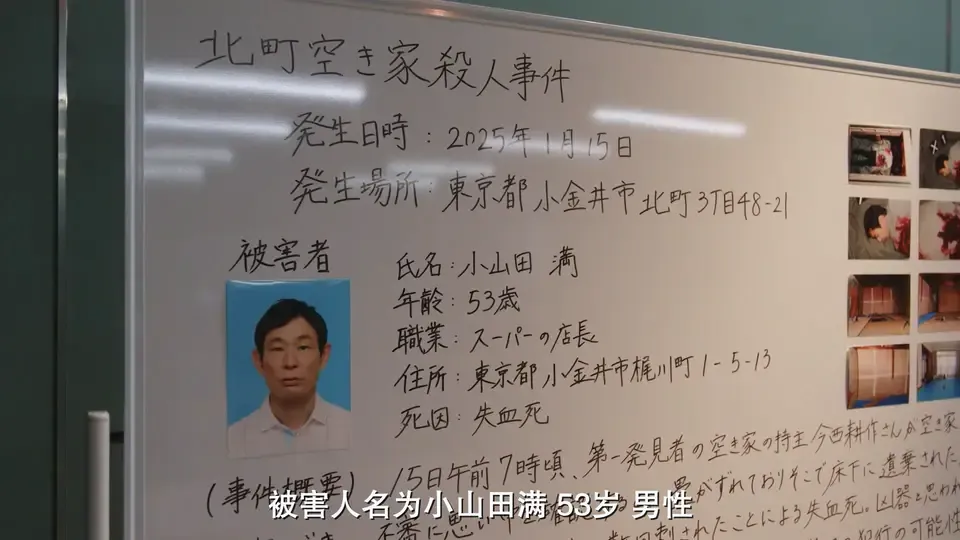 北町空き家殺人事件
発生日時：2025年1月15日
発生場所：東京都小金井市北町3丁目48-21
被害者
氏名：小山田 満
年齢：53歳
職業：スーパーの店長
住所：東京都小金井市梶川町1-5-13
死因：失血死
(事件概要) 15日午前7時頃、第一発見者の空き家の持主今西耕作さんが空き家
不審に思い 畳がずれておりそこで床下に遺棄された
刺されたことによる失血死。凶器と思われ
犯行の可能性
被害人名为小山田满 53岁 男性